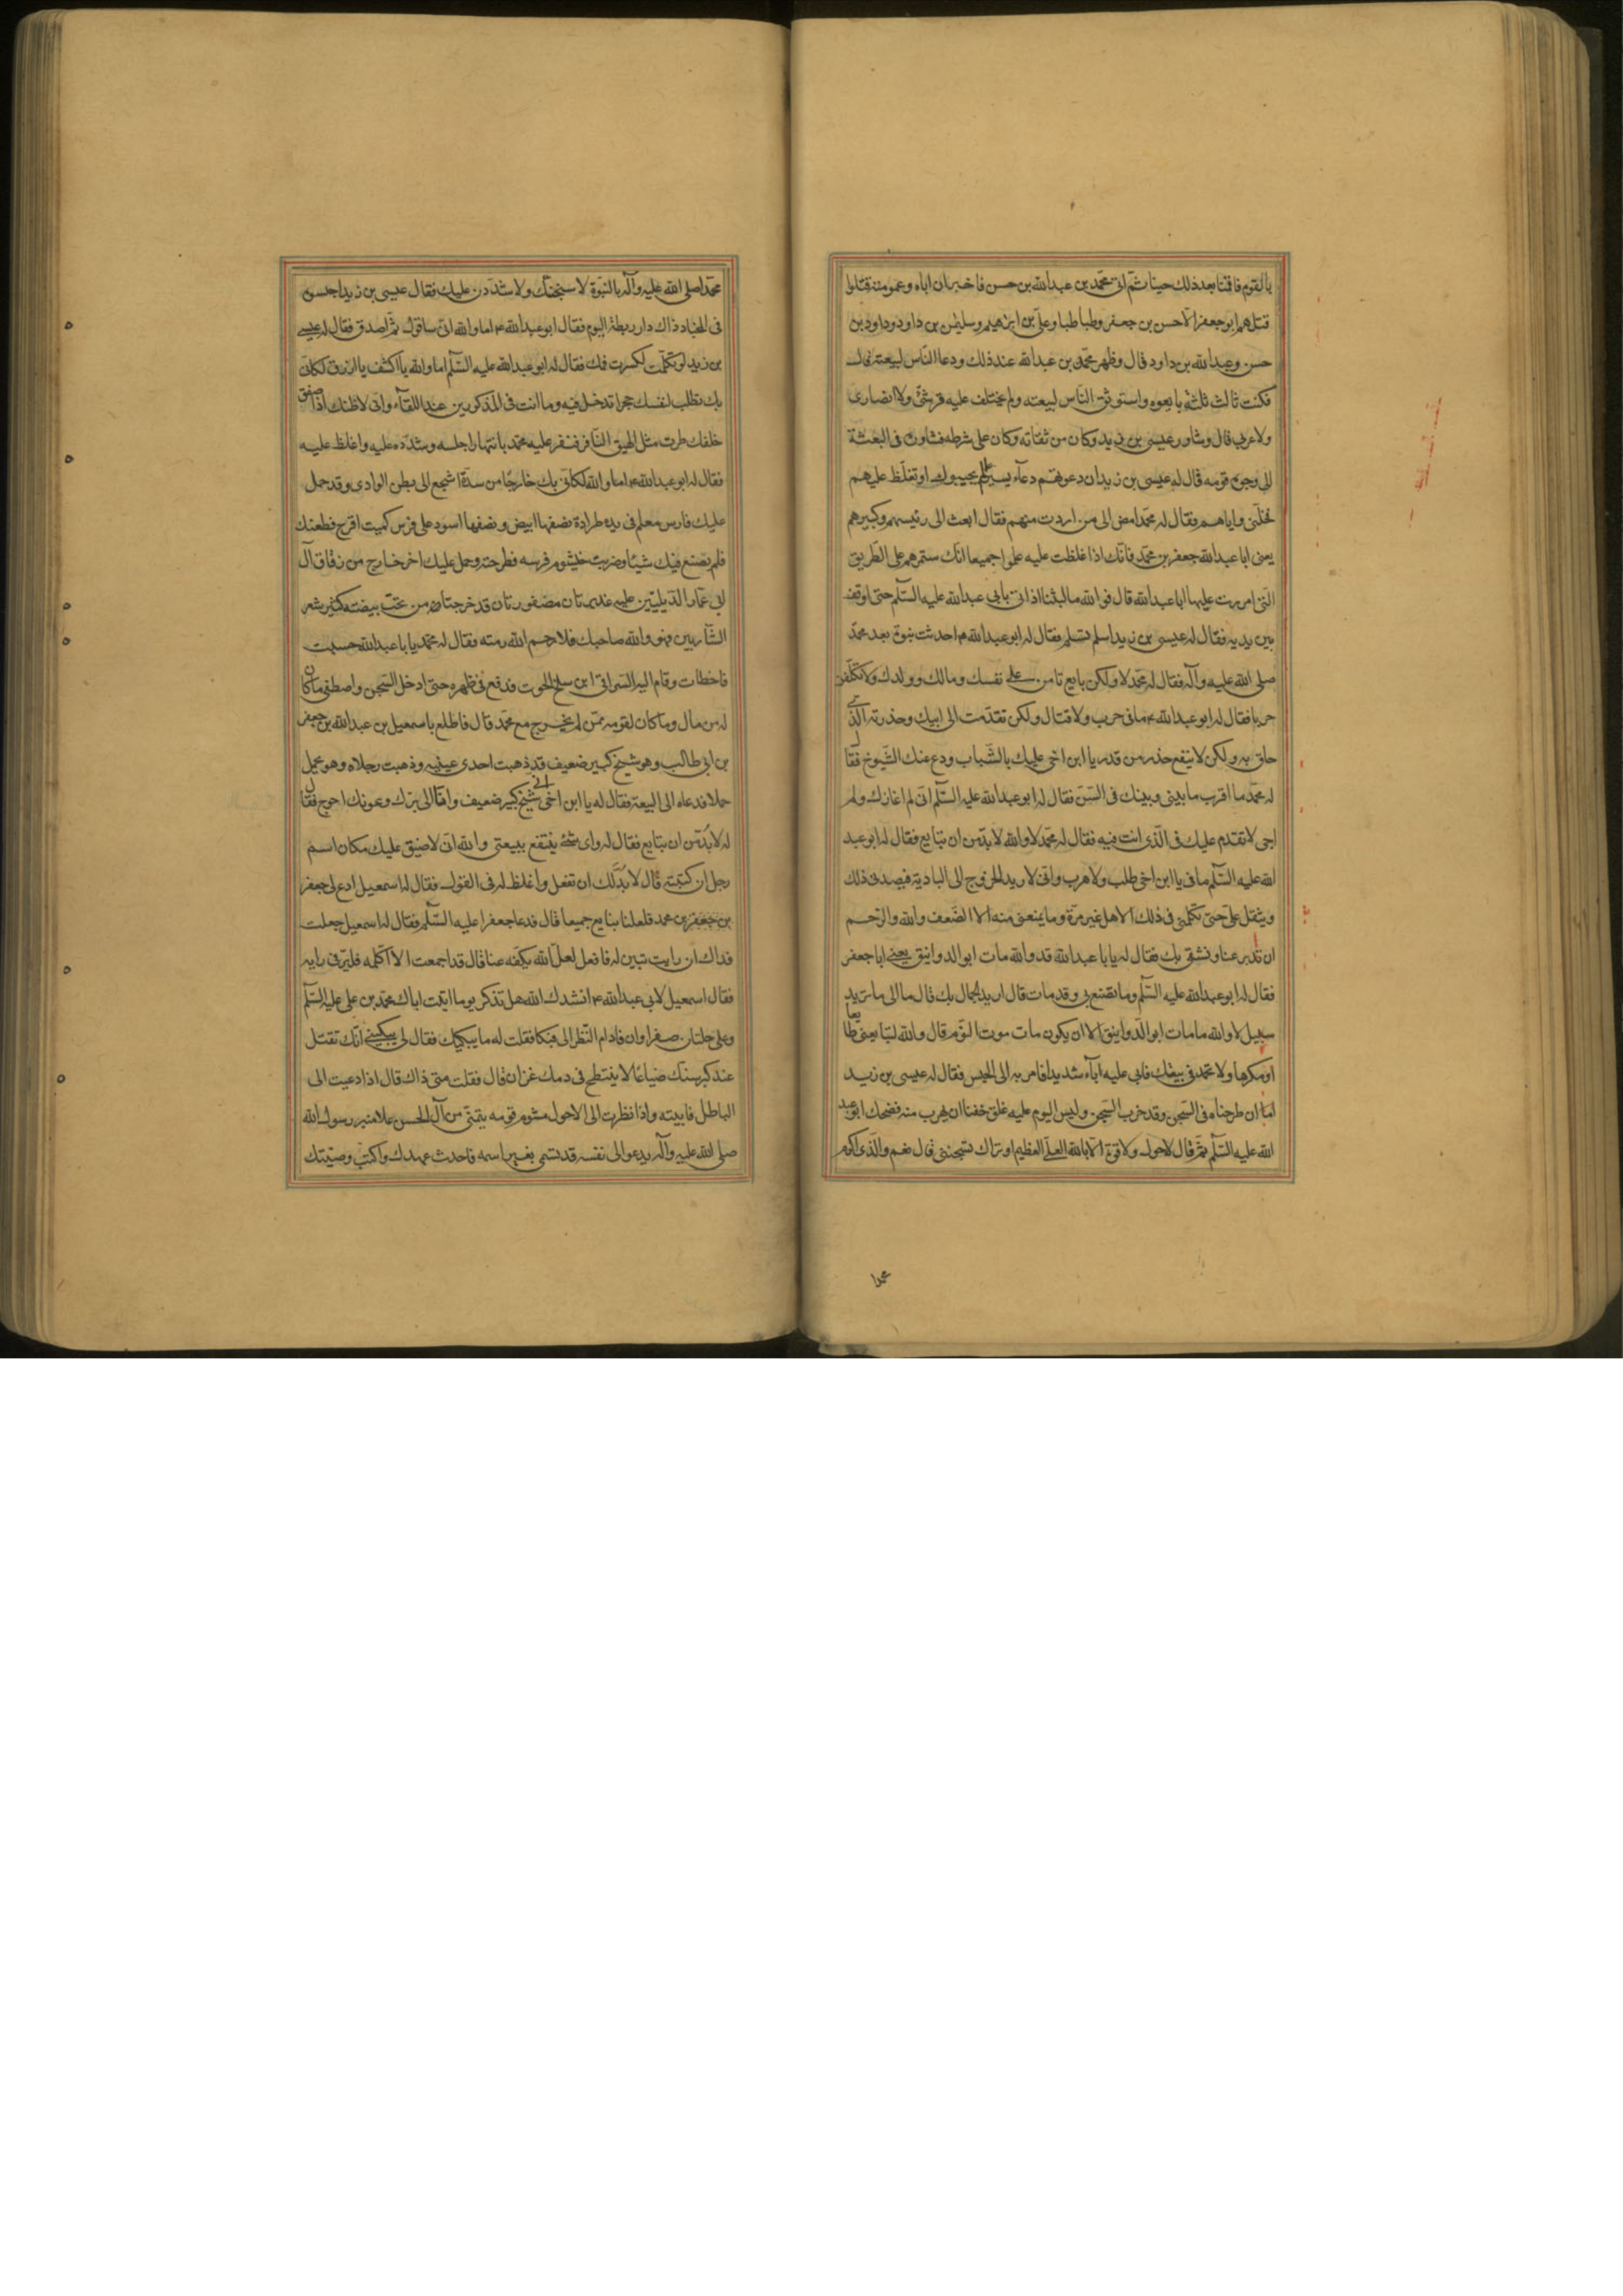 بالقوم فاقمنا بعد ذلك حينا ثم اتى محمد بن عبدالله بن حسن فاخبر ان اباه وعمومته قتلوا
قتلهم ابو جعفر الا حسن بن جعفر وطباطبا وعلي بن ابرهيم وسليمن بن داود وداود بن
حسن وعبدالله بن داود قال وظهر محمد بن عبدالله عند ذلك ودعا الناس لبيعته قال
فكنت ثالث ثلثة بايعوه واستوثق الناس لبيعته ولم يختلف عليه قرشي ولا انصاري
ولا عربي قال وشاور عيسى بن زيد وكان من ثقاته وكان على شرطه فشاوره في البعثة
الى وجوه قومه قال له عيسى بن زيد ان دعوتهم دعاء يسيرا لم يجيبوك او تغلظ عليهم
فخلني واياهم فقال له محمد امض الى من اردت منهم فقال ابعث الى رئيسهم وكبيرهم
يعني ابا عبدالله جعفر بن محمد فانك اذا غلظت عليه علموا جميعا انك ستمرهم على الطريق
التي امررت عليها ابا عبدالله قال فوالله ما لبثنا اذ اتى بابي عبدالله عليه السلم حتى اوقف
بين يديه فقال له عيسى بن زيد اسلم تسلم فقال له ابو عبدالله ع احدثت نبوة بعد محمد
صلى الله عليه وآله فقال له محمد لا ولكن بايع تامن على نفسك ومالك وولدك ولا تكلفن
حربا فقال له ابو عبدالله ع ما في حرب ولا قتال ولكن تقدمت الى ابيك وحذرته الذي
حاق به ولكن لا ينفع حذر من قدر يا ابن اخي عليك بالشباب ودع عنك الشيوخ فقال
له محمد ما اقرب ما بيني وبينك في السن فقال له ابو عبدالله عليه السلم اني لم اعازك ولم
اجى لاتقدم عليك في الذي انت فيه فقال له محمد لا والله لا بد من ان تبايع فقال له ابو عبد
الله عليه السلم ما في يا ابن اخي طلب ولا هرب واني لاريد الخروج الى البادية فيصدني ذلك
ويثقل علي حتى تكلمني في ذلك الاهل غير مرة وما يمنعني منه الا الضعف والله والرحم
ان تدبر عنا ونشقى بك فقال له يابا عبدالله قد والله مات ابو الدوانيق يعني ابا جعفر
فقال له ابو عبدالله عليه السلم وما تصنع بي وقد مات قال اريد الجمال بك قال ما الى ما تريد
سبيل لا والله ما مات ابو الدوانيق الا ان يكون مات موت النوم قال والله لتبايعني طايعا
او مكرها ولا تحمد في بيعتك فابى عليه اباء شديدا فامر به الى الحبس فقال له عيسى بن زيد
اما ان طرحناه في السجن وقد خرب السجن وليس اليوم عليه غلق خفنا ان يهرب منه فضحك ابو عبد
الله عليه السلم ثم قال لا حول ولا قوة الا بالله العلي العظيم او تراك تسجنني قال نعم والذي اكرم
محمدا
محمدا صلى الله عليه وآله بالنبوة لاسجننك ولاشددن عليك فقال عيسى بن زيد احبسوه
في المخباء وذاك دار ريطة اليوم فقال ابو عبدالله ع اما والله اني ساقول ثم اصدق فقال له عيسى
بن زيد لو تكلمت لكسرت فمك فقال له ابو عبدالله عليه السلم اما والله يا اكشف يا ازرق لكاني
بك تطلب لنفسك جحرا تدخل فيه وما انت في المذكورين عند اللقاء واني لاظنك اذا صفق
خلفك طرت مثل الهيق النافر فنفر عليه محمد بانتهار احبسه وشدد عليه واغلظ عليه
فقال له ابو عبدالله ع اما والله لكاني بك خارجا من سدة اشجع الى بطن الوادي وقد حمل
عليك فارس معلم في يده طرادة نصفها ابيض ونصفها اسود على فرس كميت اقرح فطعنك
فلم يصنع فيك شيئا وضربت خيشوم فرسه فطرحته وحمل عليك اخر خارج من زقاق آل
ابي عمار الديليين عليه غديرتان مضفورتان قد خرجتا من تحت بيضته كثير شعر
الشاربين فهو والله صاحبك فلا رحم الله رمته فقال له محمد يابا عبدالله حسبت
فاخطات وقام اليه السراقي ابن سلخ الحوت فدفع في ظهره حتى ادخل السجن واصطفى ما كان
له من مال وما كان لقومه ممن لم يخرج مع محمد قال فاطلع باسمعيل بن عبدالله بن جعفر
بن ابي طالب وهو شيخ كبير ضعيف قد ذهبت احدى عينيه وذهبت رجلاه وهو يحمل
حملا فدعاه الى البيعة فقال له يا ابن اخي اني شيخ كبير ضعيف وانا الى برك وعونك احوج فقال
له لا بد من ان تبايع فقال له واي شئ ينتفع ببيعتي والله اني لاضيق عليك مكان اسم
رجل ان كتبته قال لا بد لك ان تفعل واغلظ له في القول فقال له اسمعيل ادع لي جعفر
بن محمد فلعلنا نبايع جميعا قال فدعا جعفرا عليه السلم فقال له اسمعيل جعلت
فداك ان رايت تبين له فافعل لعل الله يكفه عنا قال قد اجمعت الا اكلمه فلير في رايه
فقال اسمعيل لابي عبدالله ع انشدك الله هل تذكر يوما اتيت اباك محمد بن علي عليه السلم
وعلي حلتان صفراوان فادام النظر الي فبكا فقلت له ما يبكيك فقال لي يبكيني انك تقتل
عند كبر سنك ضياعا لا ينتطح في دمك عنزان قال فقلت متى ذاك قال اذا دعيت الى
الباطل فابيته واذا نظرت الى الاحول مشوم قومه ينتمي من آل الحسن على منبر رسول الله
صلى الله عليه وآله يدعو الى نفسه قد تسمى بغير اسمه فاحدث عهدك واكتب وصيتك